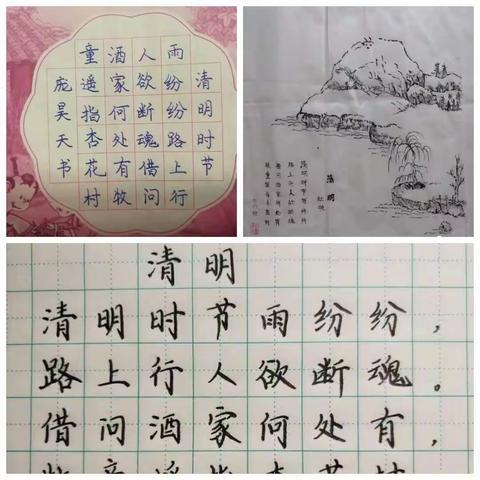 清明时节
雨纷纷路上行
人欲断魂借问
酒家何处有牧
童遥指杏花村
庞昊天书
清明
杜牧
清明时节雨纷纷
路上行人欲断魂
借问酒家何处有
牧童遥指杏花村
清明
清明时节雨纷纷，
路上行人欲断魂。
借问酒家何处有，